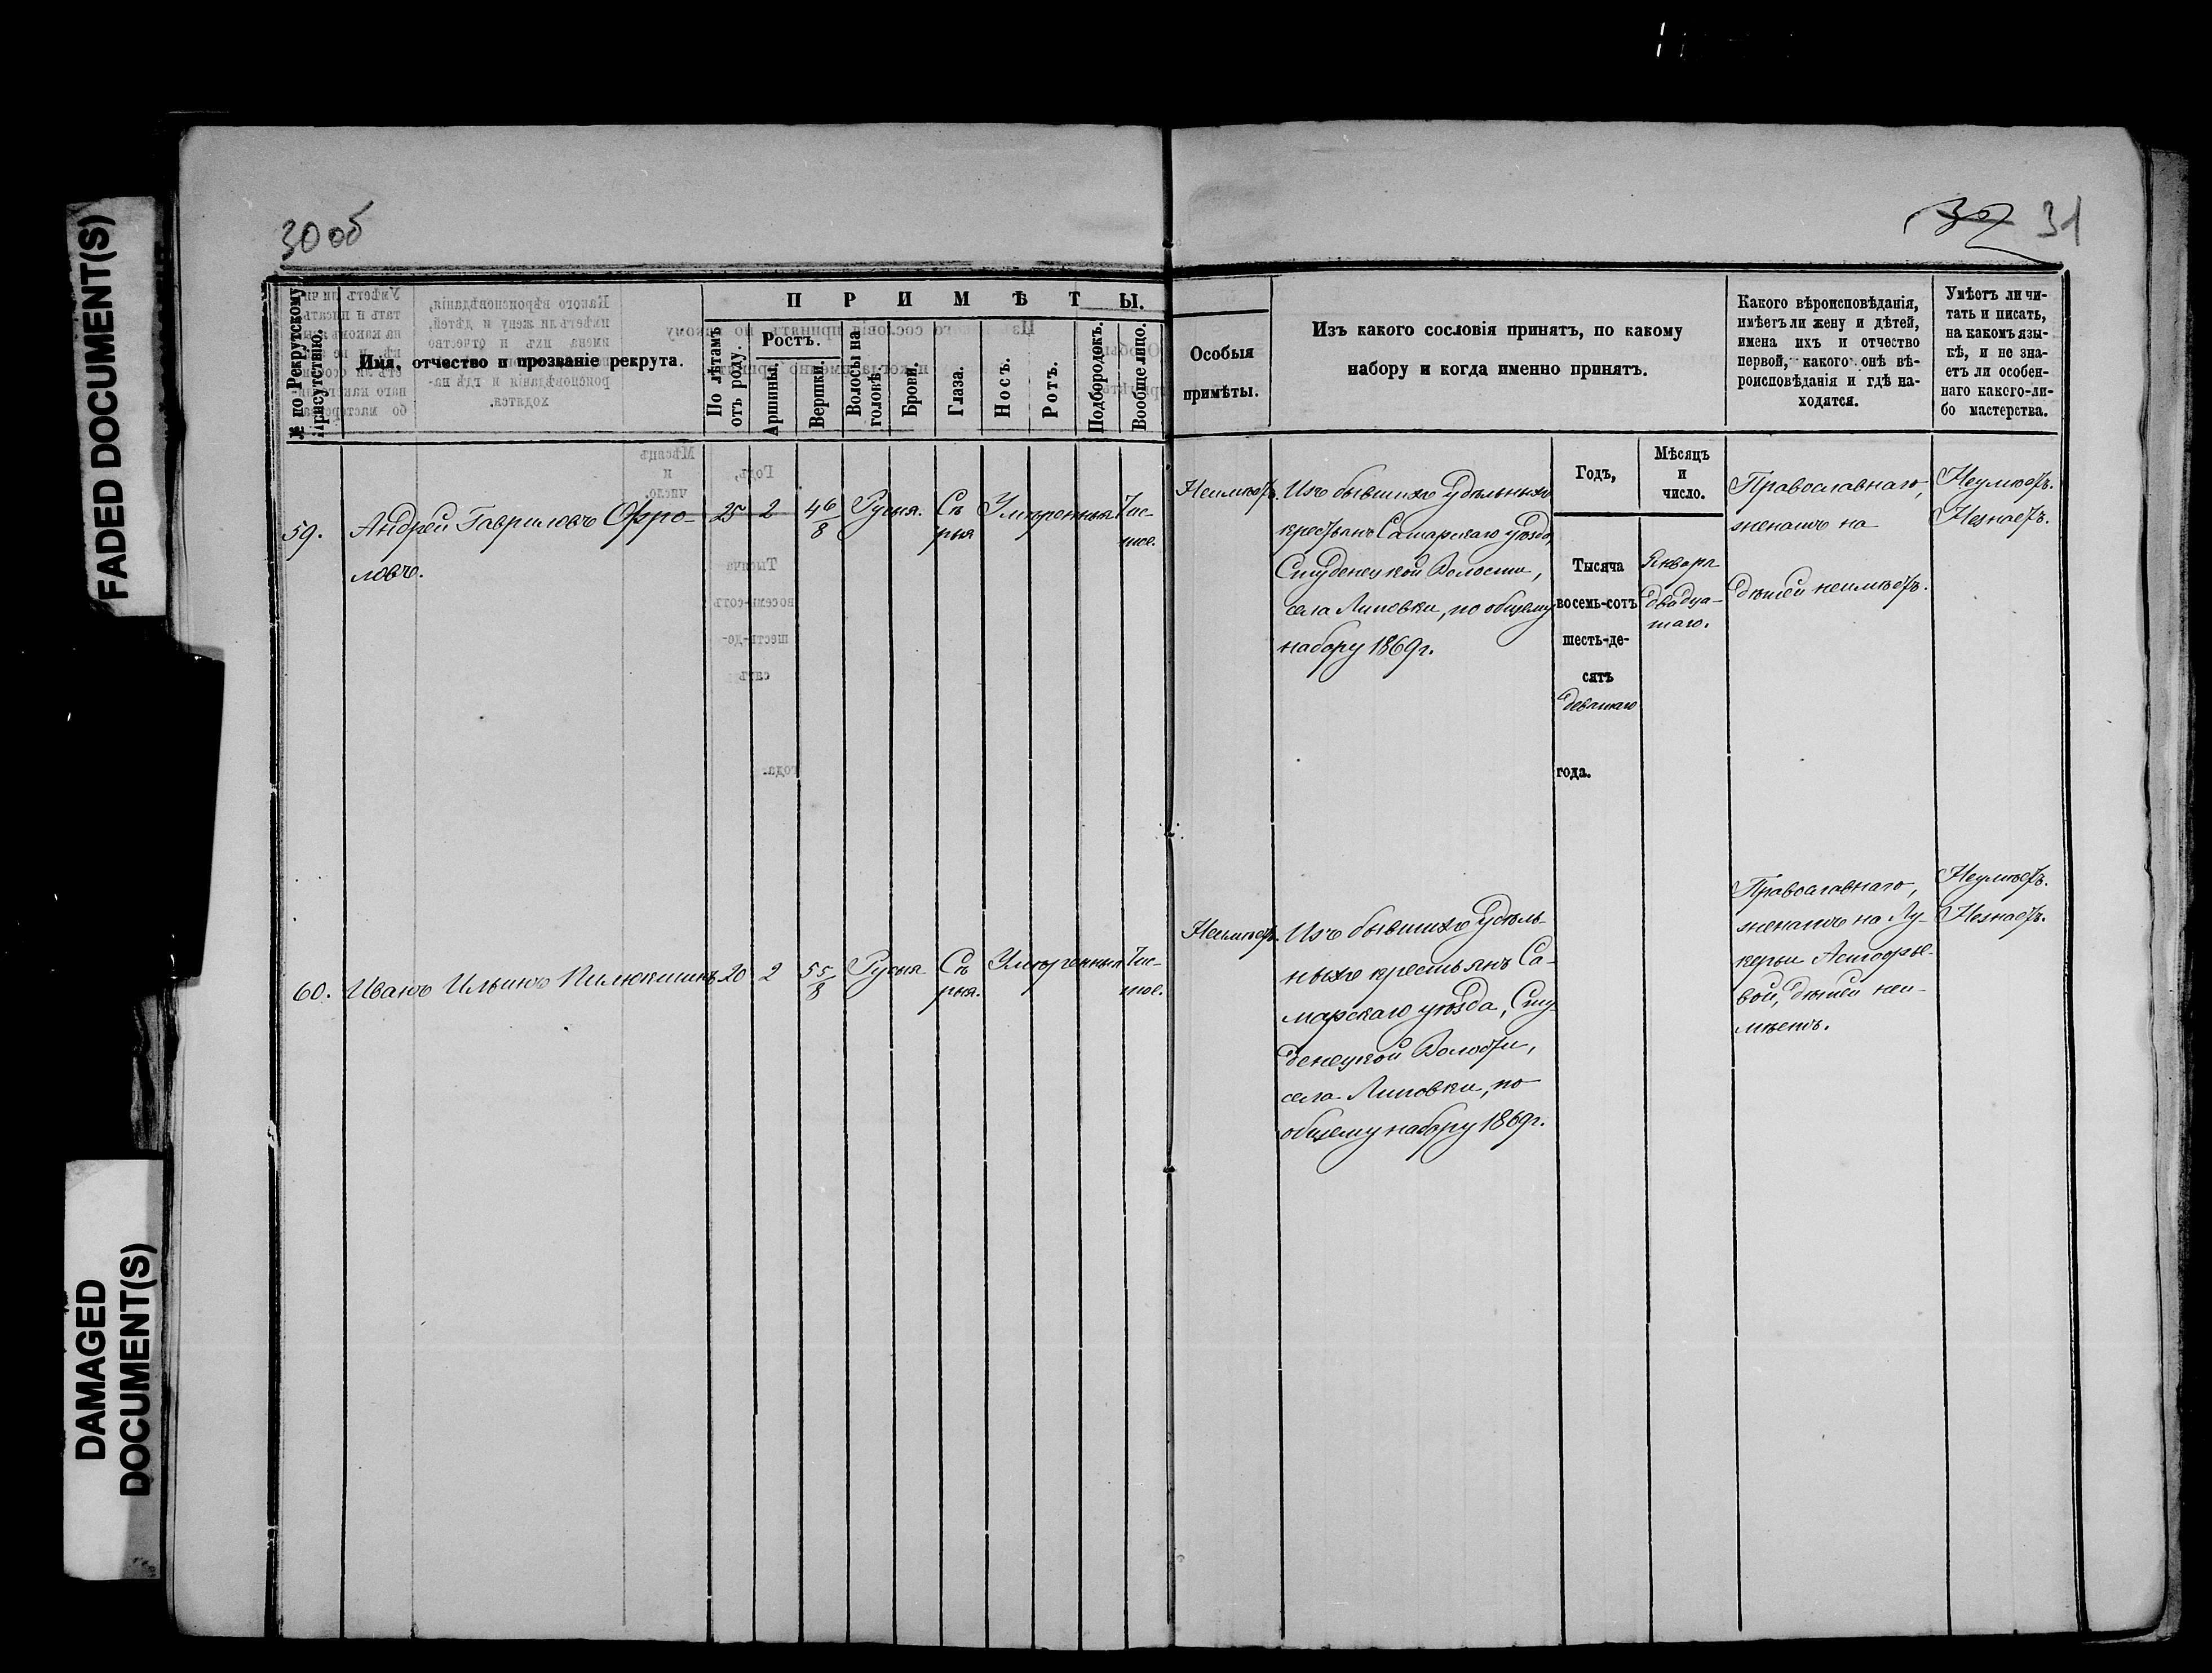 FADED DOCUMENT(S)
DAMAGED DOCUMENT(S)
30 об
32 31
№ по Рекрутскому Присутствію.
Имя, отчество и прозваніе рекрута.
ПРИМѢТЫ.
По лѣтамъ отъ роду.
Ростъ.
Аршины.
Вершки.
Волосы на головѣ.
Брови.
Глаза.
Носъ.
Ротъ.
Подбородокъ.
Вообще лицо.
Особыя
примѣты.
Изъ какого сословія принятъ, по какому
набору и когда именно принятъ.
Какого вѣроисповѣданія,
имѣетъ ли жену и дѣтей,
имена ихъ и отчество
первой, какого онѣ вѣ-
роисповѣданія и гдѣ на-
ходятся.
Умѣетъ ли чи-
тать и писать,
на какомъ язы-
кѣ, и не зна-
етъ ли особен-
наго какого-ли-
бо мастерства.
Годъ,
Мѣсяцъ
и
число.
59. Андрей Гавриловъ Фро-
ловъ.
25 2 4 6/8 Русыя. Сѣ
рыя Умѣренныя Чис-
тое.
Неимѣетъ.
Изъ бывшихъ Удѣльныхъ
крестьянъ Самарскаго уѣзда,
Студенецкой Волости,
села Липовки, по общему
набору 1869 г.
Тысяча
восемь-сотъ
шесть-де-
сятъ
девятаго
года.
Января
двадца-
таго.
Православнаго,
женатъ на
дѣтей неимѣетъ.
Неумѣетъ.
Незнаетъ.
60. Иванъ Ильинъ Пилюкшинъ 20 2 5 5/8 Русыя Сѣ
рыя. Умѣренныя Чис-
тое.
Неимѣетъ.
Изъ бывшихъ Удѣль-
ныхъ крестьянъ Са-
марскаго уѣзда, Сту-
денецкой Волости,
села Липовки, по
общему набору 1869 г.
Православнаго,
женатъ на Лу-
керьи
вой, дѣтей неи-
мѣетъ.
Неумѣетъ.
Незнаетъ.